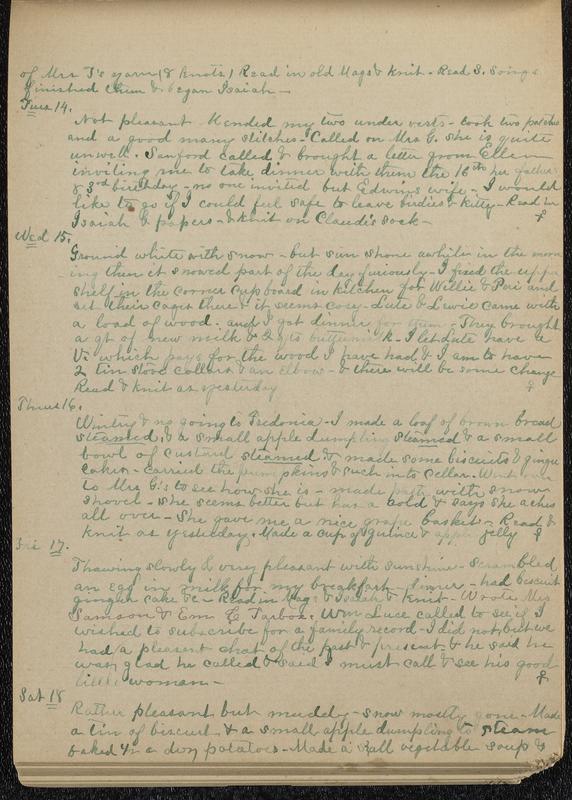 of Mrs T's yarn (8 knots) Read in old Mags & knit - Read S. Songs
finished them & began Isaiah -
Tues 14.
Not pleasant Mended my two under vests - took two patches
and a good many stitches - Called on Mrs G. she is quite
unwell. Sanford called & brought a letter from Ellen
inviting me to take dinner with them the 16th her fathers
83rd birthday - no one invited but Edwins wife - I would
like to go if I could feel safe to leave birdies & kitty - Read in
Isaiah & papers - & knit on Claudis sock -
Wed 15.
Ground white with snow - but sun shone awhile in the morn
ing then it snowed part of the day furiously - I fixed the upper
shelf in the corner cupboard in kitchen for Willie & Pari and
set their cages there & it seems cosy - Lute & Lewie came with
a load of wood. and I got dinner for them - They brought
a qt of new milk & 2 qts buttermilk - I let Lute have a
V. which pays for the wood I have had & I am to have
2 tin stove collars & an elbow - & there will be some change
Read & knit as yesterday
Thurs 16.
Wintry & no going to Fredonia - I made a loaf of brown bread
steamed, & a small apple dumpling steamed & a small
bowl of custard steamed & made some biscuits & ginger
cakes - carried the pumpkins & such into cellar. Went over
to Mrs G's to see how she is - made path with snow
shovel - she seems better but has a cold & says she aches
all over - She gave me a nice grape basket - Read &
knit as yesterday. Made a cup of quince & apple jelly
Fri 17.
Thawing slowly & very pleasant with sunshine - scrambled
an egg in milk for my breakfast - dinner - had biscuit
ginger cake &c - Read in Mag. & Isaiah & knit - Wrote Mrs
Samson & Em C Tarbox. Wm Luce called to see if I
wished to subscribe for a family record - I did not, but we
had a pleasant chat of the past & present, & he said he
was glad he called & said I must call & see his good
little woman -
Sat 18
Rather pleasant but muddy - snow mostly gone - Made
a tin of biscuit & a small apple dumpling to steam
baked ½ a doz potatoes - Made a small vegetable soup &